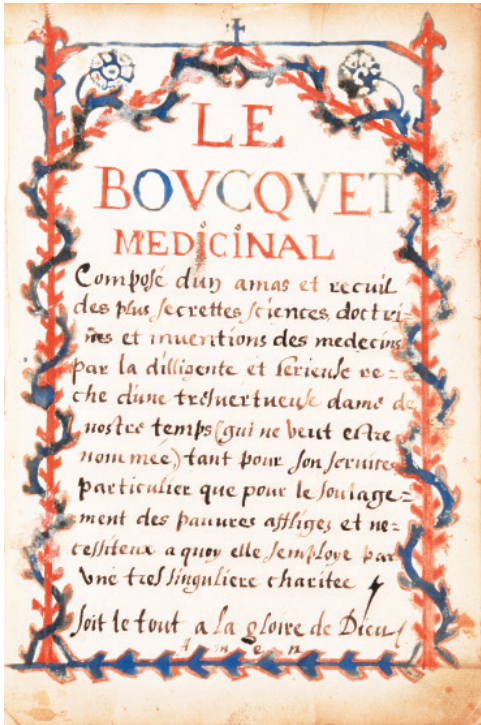 LE
BOVCQVET
MEDICINAL
Composé d'un amas et recuil
des plus secrettes sciences, doctri-
nes et inuentions des medecins
par la dilligente et serieuse re=
che d'une tresuertueuse dame de
nostre temps (qui ne veut estre
nommée) tant pour son seruice
particulier que pour le soulage=
ment des pauures affligez et ne=
cessiteux a quoy elle semploye par
vne tres singuliere charitée
soit le tout a la gloire de Dieu
Amen